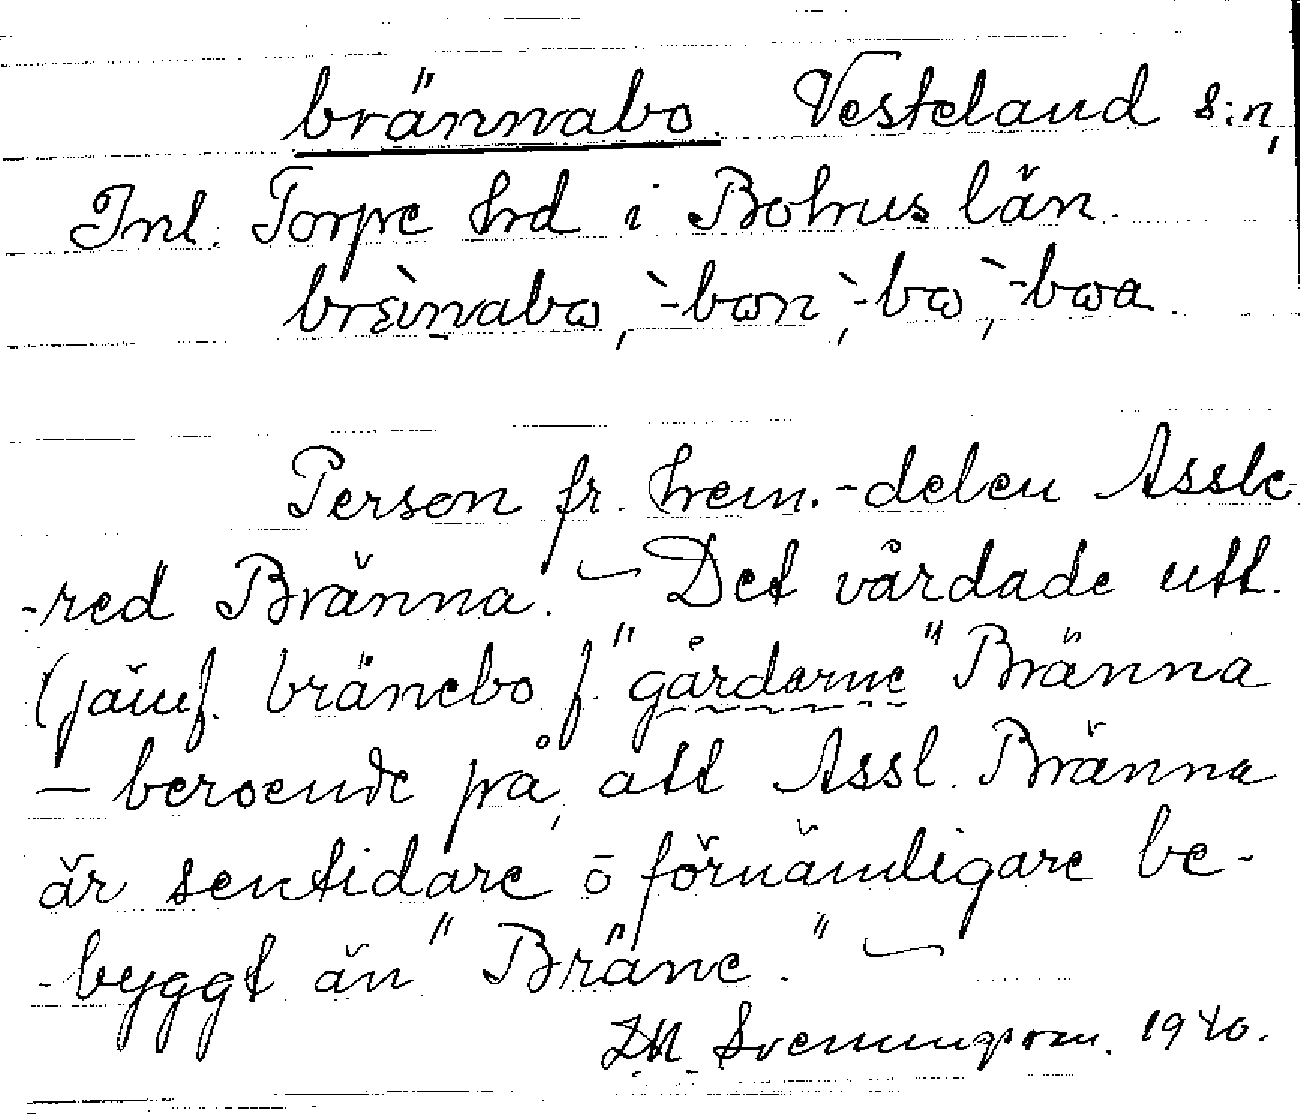 brännabo. Vesteland s:n,
Inl. Torpe hrd i Bohus län.
Person fr. hem.-delen Assle-
-red Bränna. — Det vårdade utt.
(jämf. bränebo f. "gårdarne" Bränna
— beroende på, att Assl. Bränna
är sentidare o förnämligare be-
-byggt än "Bräne." —
Svenningsson. 1940.